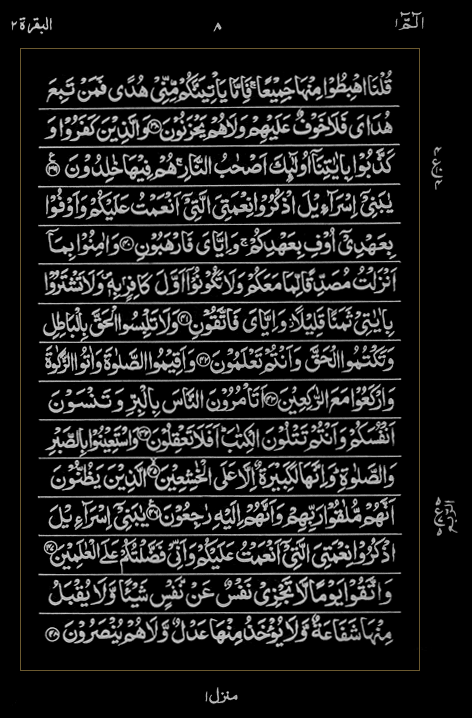 الٓمّٓ ١ ٨ البقرة ٢
قُلْنَا اهْبِطُوْا مِنْهَا جَمِيْعًا ۚ فَاِمَّا يَاْتِيَنَّكُمْ مِّنِّيْ هُدًى فَمَنْ تَبِعَ
هُدَايَ فَلَا خَوْفٌ عَلَيْهِمْ وَلَا هُمْ يَحْزَنُوْنَ ﴿۳۸﴾ وَالَّذِيْنَ كَفَرُوْا وَ
كَذَّبُوْا بِاٰيٰتِنَاۤ اُولٰٓئِكَ اَصْحٰبُ النَّارِ ۚ هُمْ فِيْهَا خٰلِدُوْنَ ﴿۳۹﴾
يٰبَنِيْۤ اِسْرَآءِيْلَ اذْكُرُوْا نِعْمَتِيَ الَّتِيْۤ اَنْعَمْتُ عَلَيْكُمْ وَاَوْفُوْا
بِعَهْدِيْۤ اُوْفِ بِعَهْدِكُمْ ۚ وَاِيَّايَ فَارْهَبُوْنِ ﴿۴۰﴾ وَاٰمِنُوْا بِمَاۤ
اَنْزَلْتُ مُصَدِّقًا لِّمَا مَعَكُمْ وَلَا تَكُوْنُوْۤا اَوَّلَ كَافِرٍۢ بِهٖ ۪ وَلَا تَشْتَرُوْا
بِاٰيٰتِيْ ثَمَنًا قَلِيْلًا ؗ وَّاِيَّايَ فَاتَّقُوْنِ ﴿۴۱﴾ وَلَا تَلْبِسُوا الْحَقَّ بِالْبَاطِلِ
وَتَكْتُمُوا الْحَقَّ وَاَنْتُمْ تَعْلَمُوْنَ ﴿۴۲﴾ وَاَقِيْمُوا الصَّلٰوةَ وَاٰتُوا الزَّكٰوةَ
وَارْكَعُوْا مَعَ الرّٰكِعِيْنَ ﴿۴۳﴾ اَتَاْمُرُوْنَ النَّاسَ بِالْبِرِّ وَتَنْسَوْنَ
اَنْفُسَكُمْ وَاَنْتُمْ تَتْلُوْنَ الْكِتٰبَ ؕ اَفَلَا تَعْقِلُوْنَ ﴿۴۴﴾ وَاسْتَعِيْنُوْا بِالصَّبْرِ
وَالصَّلٰوةِ ؕ وَاِنَّهَا لَكَبِيْرَةٌ اِلَّا عَلَى الْخٰشِعِيْنَ ﴿۴۵﴾ الَّذِيْنَ يَظُنُّوْنَ
اَنَّهُمْ مُّلٰقُوْا رَبِّهِمْ وَاَنَّهُمْ اِلَيْهِ رٰجِعُوْنَ ﴿۴۶﴾ يٰبَنِيْۤ اِسْرَآءِيْلَ
اذْكُرُوْا نِعْمَتِيَ الَّتِيْۤ اَنْعَمْتُ عَلَيْكُمْ وَاَنِّيْ فَضَّلْتُكُمْ عَلَى الْعٰلَمِيْنَ ﴿۴۷﴾
وَاتَّقُوْا يَوْمًا لَّا تَجْزِيْ نَفْسٌ عَنْ نَّفْسٍ شَيْـًٔا وَّلَا يُقْبَلُ
مِنْهَا شَفَاعَةٌ وَّلَا يُؤْخَذُ مِنْهَا عَدْلٌ وَّلَا هُمْ يُنْصَرُوْنَ ﴿۴۸﴾
منزل ١